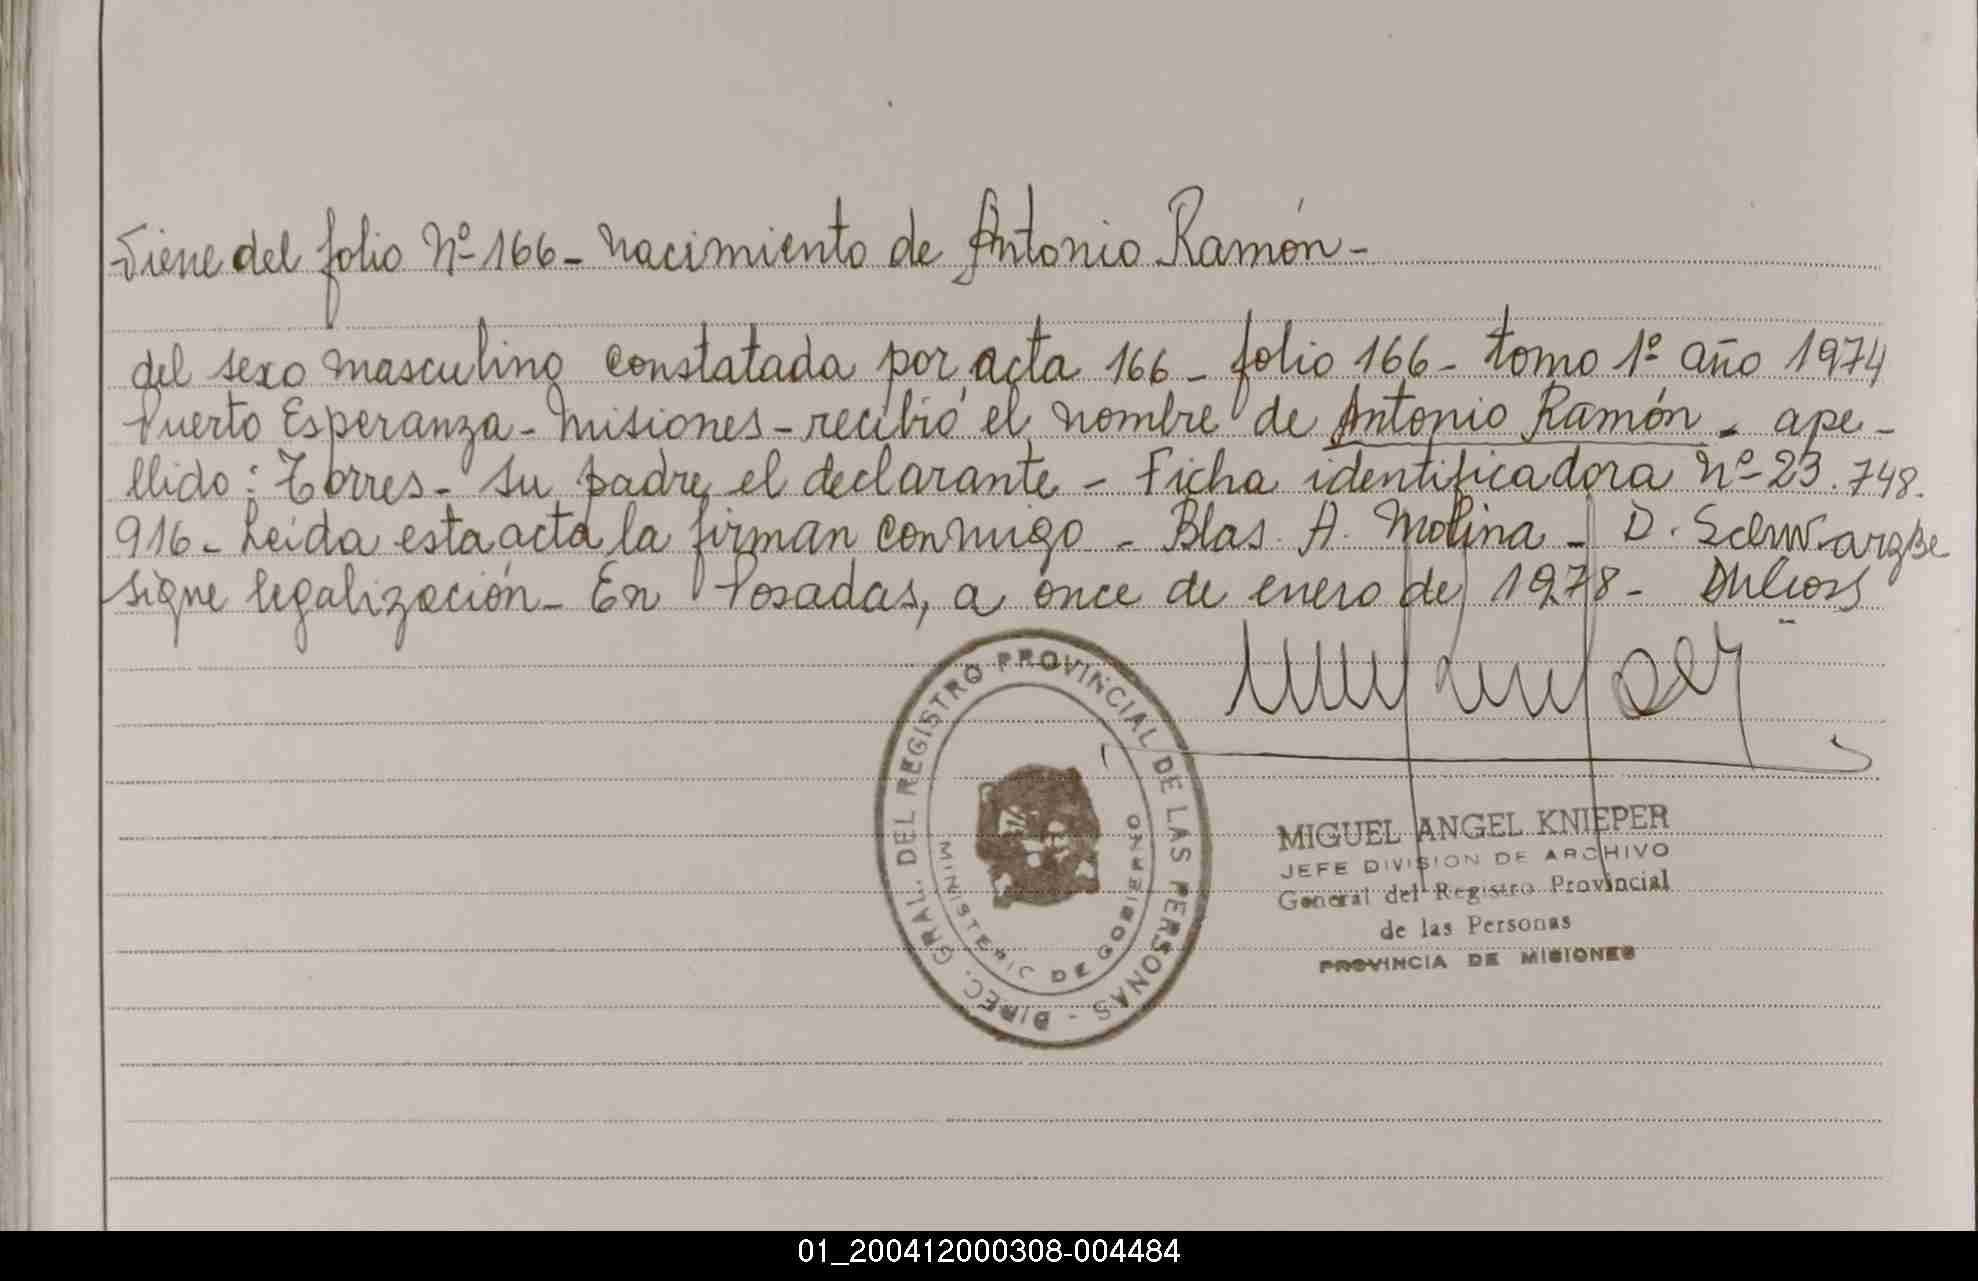 Viene del folio Nº 166 - Nacimiento de Antonio Ramón -
del sexo masculino constatada por acta 166 - folio 166 - tomo 1º año 1974
Puerto Esperanza - Misiones - recibió el nombre de Antonio Ramón - ape-
llido: Torres - su padre el declarante - Ficha identificadora Nº 23.748.
916 - Leída esta acta la firman conmigo - Blas. A. Molina - D.
sigue legalización - En Posadas, a once de enero de 1978 -
DIREC. GRAL. DEL REGISTRO PROVINCIAL DE LAS PERSONAS -
MINISTERIO DE GOBIERNO
MIGUEL ANGEL KNIEPER
JEFE DIVISION DE ARCHIVO
General del Registro Provincial
de las Personas
PROVINCIA DE MISIONES
01_200412000308-004484